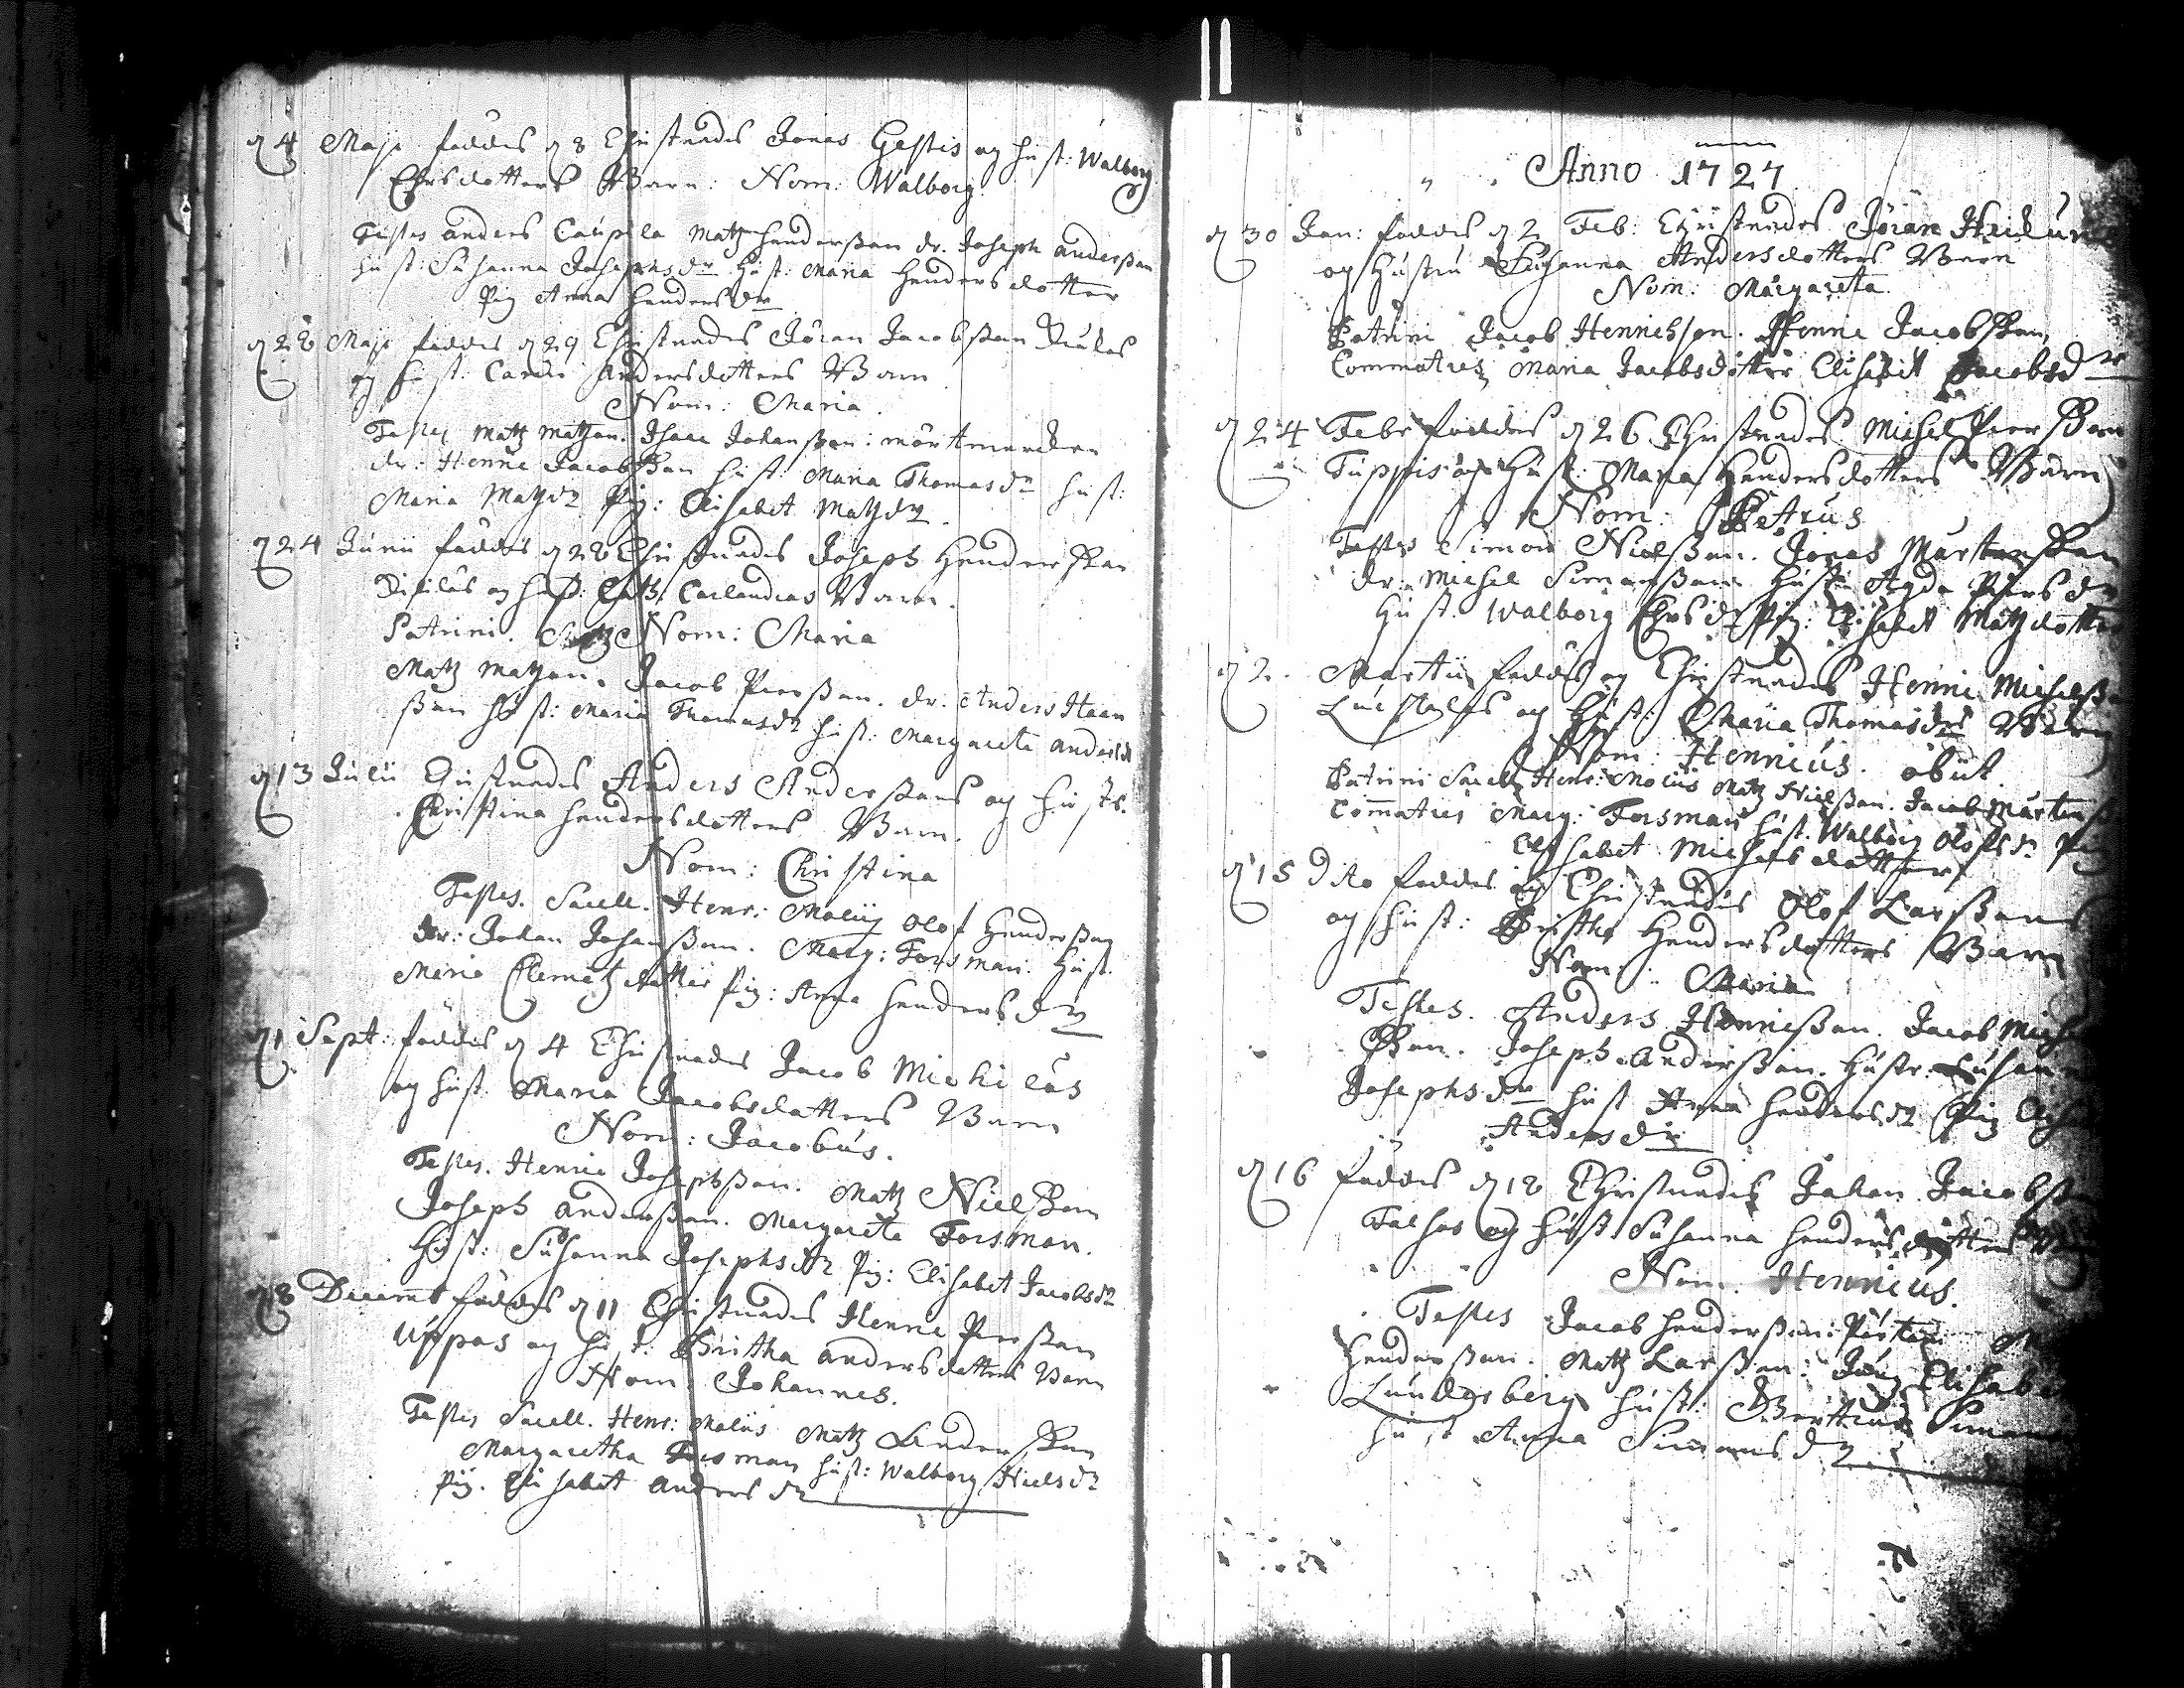 d 4 Maji föddes d 8 Christnades Jonas Gestis og hust: Walborg
Ehrsdotters Barn: Nom: Walborg
Testes anders Caupila Matz henderßon dr. Joseph anderßon
hust: Susanna Josephsdr Hust: Maria Hendersdotter
Pig Anna hendersdr
d 28 Maji föddes d 29 Christnades Jöran Jacobßon
og hust: Carin Andersdotters Barn
Nom: Maria.
Testes Matz Matzon. Isaac Johanßon:
dr: Henric Jacobßon hust: Maria Thomasdr hust:
Maria Matzdr Pig: Elisabet Matzdr.
d 24 Junii föddes d 28 Christnades Joseph Henderßon
og hust: Carlandras Barn.
Patrini. Nom: Maria
Matz Matzon. Jacob Pierßon. dr. Anders Haan
ßon hust: Maria Thomasdr hust: Margareta andersdr
d 13 Julii Christnades Anders Anderßons og hustr.
Christina hendersdotters Barn.
Nom: Christina
Testes. Sacell. Henr: Moliis Olof Henderßon
dr: Johan Johanßon. Marg: Forsman. Hust.
Maria Clemetzdotter Pig: Anna hendersdr
d 1 Sept: föddes d 4 Christnades Jacob Michilas
og hust. Maria Jacobsdotters Barn
Nom: Jacobus.
Testes. Henric Josephßon. Matz Nielßon
Joseph anderßon. Margareta Forsman.
Hust: Susanna Josephsdr Pig: Elisabet Jacobsdr
d 8 Decemb föddes d 11 Christnades Henric Pierßon
Uppas og hust: Britha andersdotters Barn
Nom: Johannes.
Testes Sacell. Henr: Moliis Matz Anderßon
Margaretha Forsman hust: Walborg Nielsdr
Pig. Elisabet andersdr
Anno 1727
d 30 Jan: föddes d 2 Feb: Christnades Jöran
og Hustru Susanna Andersdotters Barn
Nom: Margareta.
Patrini Jacob Henricsson. Henric Jacobßon,
Commatres Maria Jacobsdotter Elisabet Jacobsdr
d 24 Febr föddes d 26 Christnades Michel Pierßon
Tuppis og Hust: Maria Hendersdotters Barn
Nom: Petrus
Testes Simon Nielßon. Jonas Martenßon
dr: Michel Simonßon Hust: Agda Piersdr
Hust. Walborg Ehrsdr Pig: Elisabet Matzdotter
d 2. Martii föddes og Christnades Henric Michelßon
og Hust: Maria Thomasdrs Barn
Nom: Henricus. obiit
Patrini Sacell. Henr: Moliis Matz Nielßon. Jacob Marten
Commatres Marg: Forsman hust. Walborg Olofsdr Pig
Elisabet Michelsdotter
d 15 Dito föddes og Christnades Olof Larßons
og hust: Britha Hendersdotters Barn
Nom: Maria
Testes. Anders Henricßon. Jacob Michel
ßon. Joseph anderßon. Hustr: Susan
Josephsdr hust Anna hendersdr Pig
Andersdr
d 16 föddes d 18 Christnades Johan Jacobß
og hust Susanna hendersdotters
Nom. Henricus.
Testes Jacob henderßon:
Henderßon. Matz Larßon: Elisabet
Lundesberg hust:
hust Anna Simonsdr